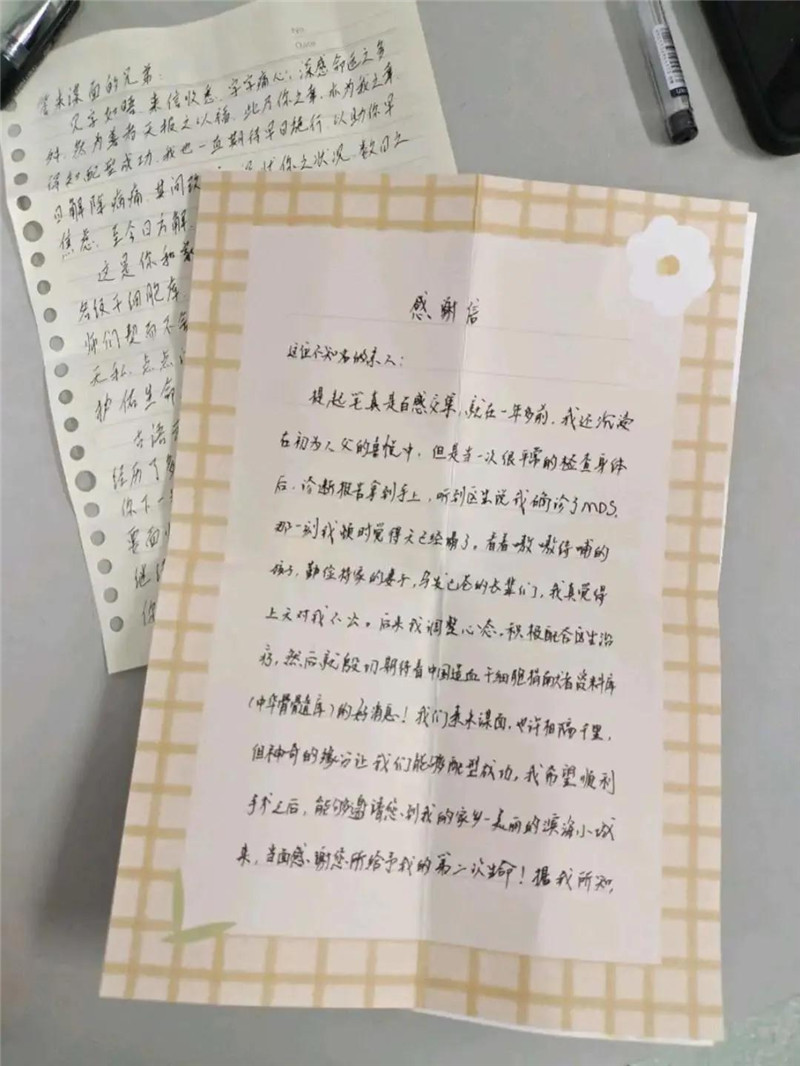 Date
未谋面的兄弟:
见字如晤,来信收悉,字字痛心,深感命运之多
然为善者天报之以福,此乃你之幸,亦为我之幸,
得知配型成功,我也一直期待早日施行,以助你早
日解除病痛,其间
焦虑,至今日方解
这是你和
师们契而不
无私,点点
护佑生命
古语
经历了
你下一
里面
继
你
感谢信
这位不知名的亲人:
提起笔真是百感交集,就在一年多前,我还沉浸
在初为人父的喜悦中,但是当一次很平常的检查身体
后,诊断报告拿到手上,听到医生说我确诊了MDS,
那一刻我顿时觉得天已经塌了,看着嗷嗷待哺的
孩子,勤俭持家的妻子,鬓发已苍的长辈们,我真觉得
上天对我不公。后来我调整心态,积极配合医生治
疗,然后就殷切期待着中国造血干细胞捐献者资料库
(中华骨髓库)的好消息!我们素未谋面,也许相隔千里,
但神奇的缘分让我们能够配型成功,我希望顺利
手术之后,能够邀请您到我的家乡-美丽的滨海小城
来,当面感谢您所给予我的第二次生命!据我所知,